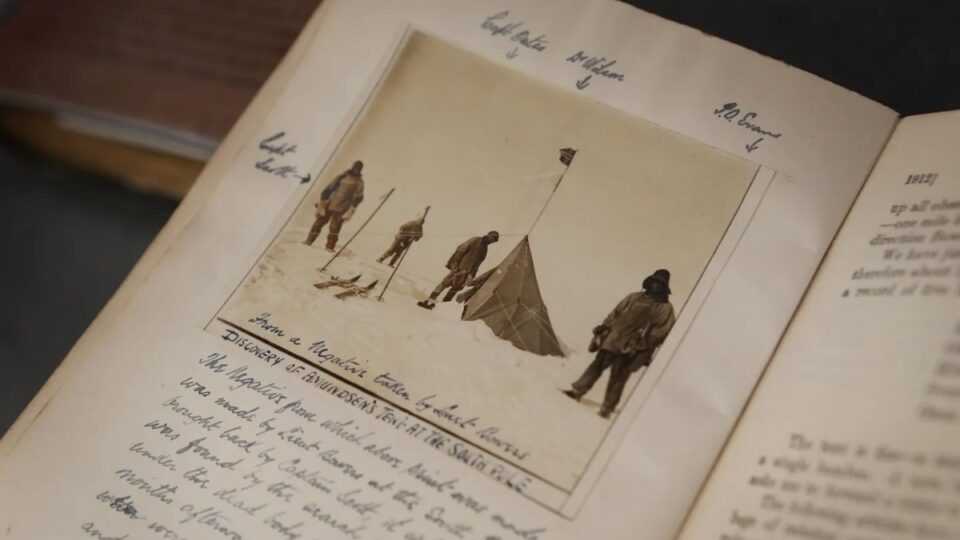 Capt Oates
Dr Wilson
P.O. Evans
Capt
Scott
From a Negative taken by Lieut Bowers
DISCOVERY OF AMUNDSEN'S TENT AT THE SOUTH POLE
The Negative from which above print was made
was made by Lieut Bowers at the South
brought back by Captain Scott, it
was found by the search
under the dead body
months afterw
and
1912]
up all obse
—one mile
direction
We have
therefore about
a record of five
The tent is
a single bamboo.
The following